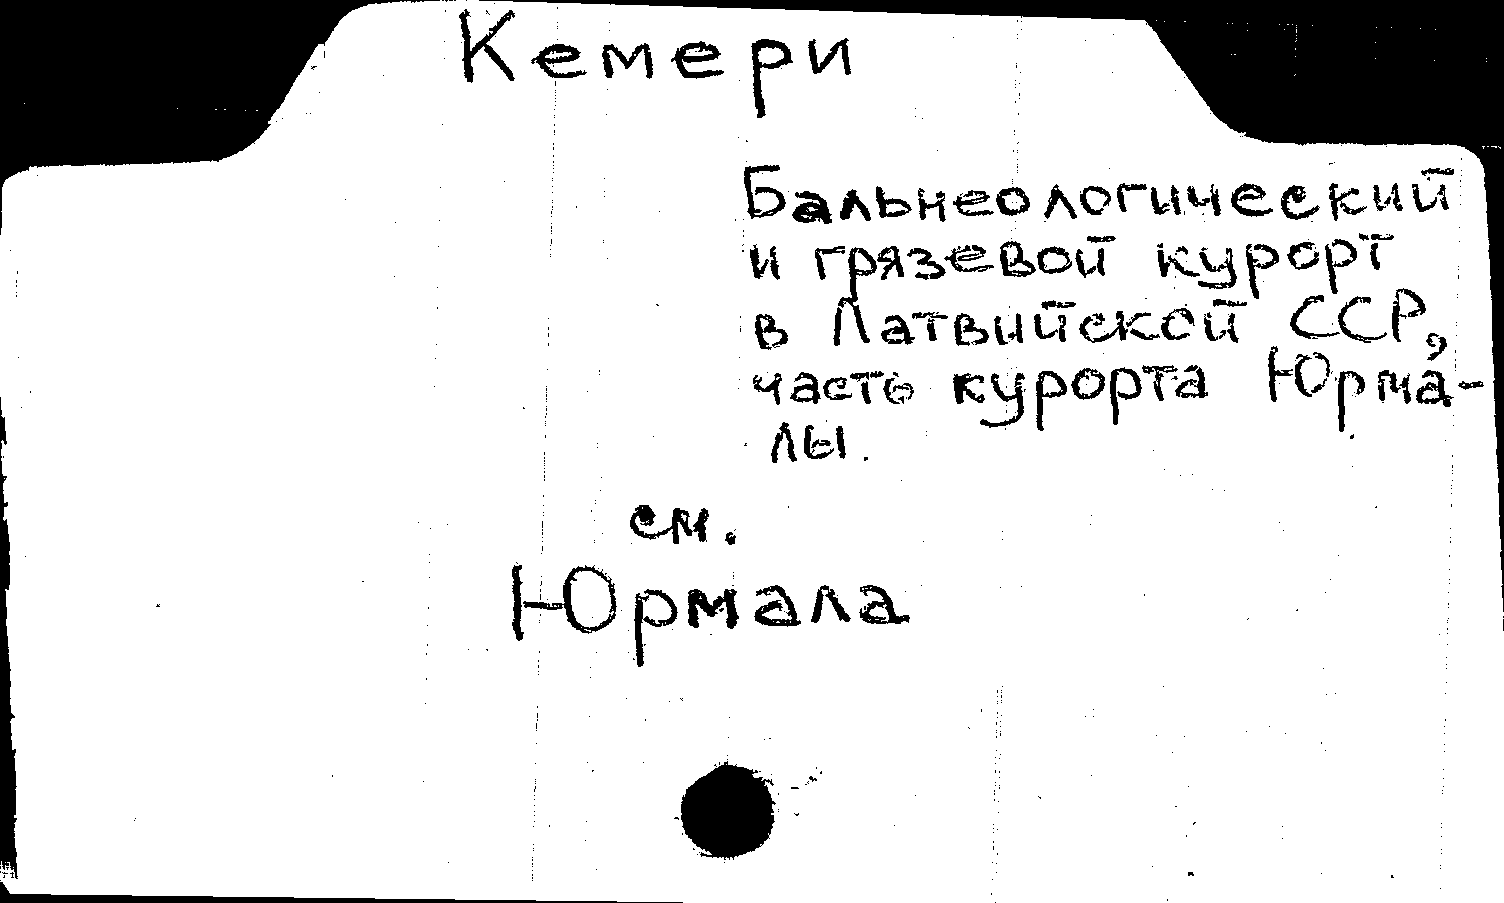 Кемери
Бальнеологический
и грязевой курорт
в Латвийской ССР,
часть курорта Юрма-
лы.
см.
Юрмала